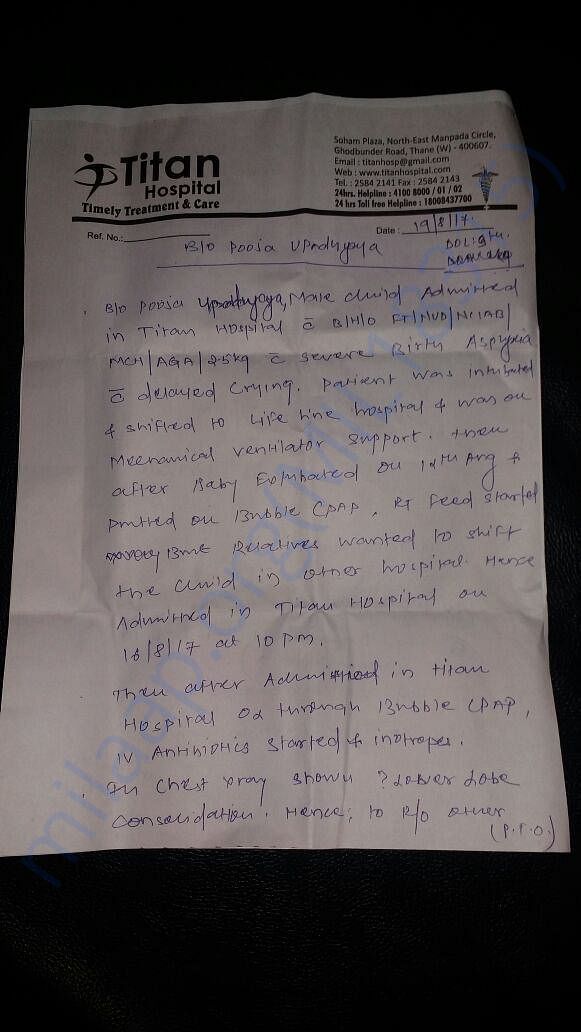 Titan
Hospital
Timely Treatment & Care
Soham Plaza, North-East Manpada Circle,
Ghodbunder Road, Thane (W) - 400607.
Email : titanhosp@gmail.com
Web : www.titanhospital.com
Tel. : 2584 2141 Fax : 2584 2143
24hrs. Helpline : 4100 8000 / 01 / 02
24 hrs Toll free Helpline : 18008437700
Ref. No.:
Date : 19/8/17.
B/O Pooja Upadhyaya
B/O Pooja Upadhyaya, Male child Admitted
in Titan Hospital c̄ B/H/O FT/NVD/NCIAB/
MCH/AGA/2.5kg c̄ severe Birth Aspyxia
c̄ delayed crying. patient was intubated
& shifted to Life line hospital & was on
Mechanical ventilator support. then
after Baby Extubated on Aug &
putted on Bubble CPAP. RT feed started
Relatives wanted to shift
the child in other hospital. Hence
Admitted in Titan Hospital on
16/8/17 at 10 pm.
Then after Admitted in titan
Hospital O2 through Bubble CPAP,
IV Antibiotics started & inotropes.
In Chest xray shown ? Lower Lobe
consolidation. Hence, to R/O other
(P.T.O.)